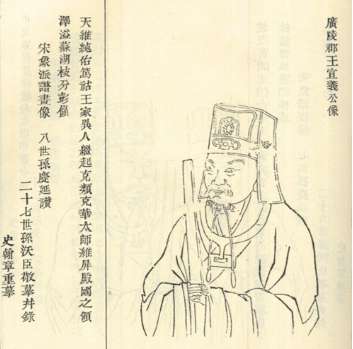 廣陵郡王宜義公像
天維純佑篤祜王家異人繼起克類克華太師維屏殿國之領
澤溢蘇湖枝分彭佳
宋彙派譜畫像　八世孫慶延讚
二十七世孫沃臣敬摹幷錄
史翰章重摹